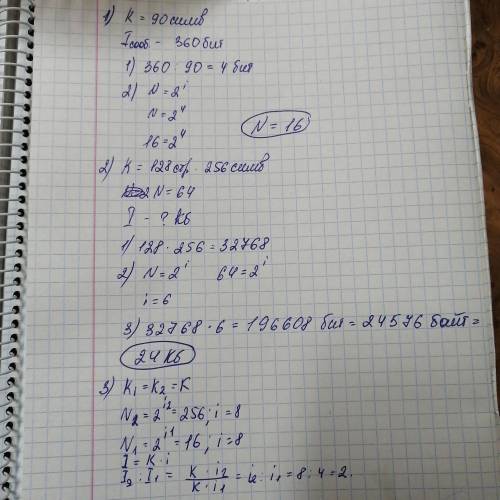 1) K = 90 симв
Iсооб - 360 бит
1) 360 : 90 = 4 бит
2) N = 2^i
N = 2^4
16 = 2^4
N = 16
2) K = 128 стр · 256 симв
N = 64
I - ? Кб
1) 128 · 256 = 32768
2) N = 2^i 64 = 2^i
i = 6
3) 32768 · 6 = 196608 бит = 24576 байт =
24 Кб
3) K₁ = K₂ = K
N₂ = 2^i2 = 256; i = 8
N₁ = 2^i1 = 16; i = 8
I = K · i
I₂ : I₁ = K · i₂ / K · i₁ = i₂ : i₁ = 8 : 4 = 2.